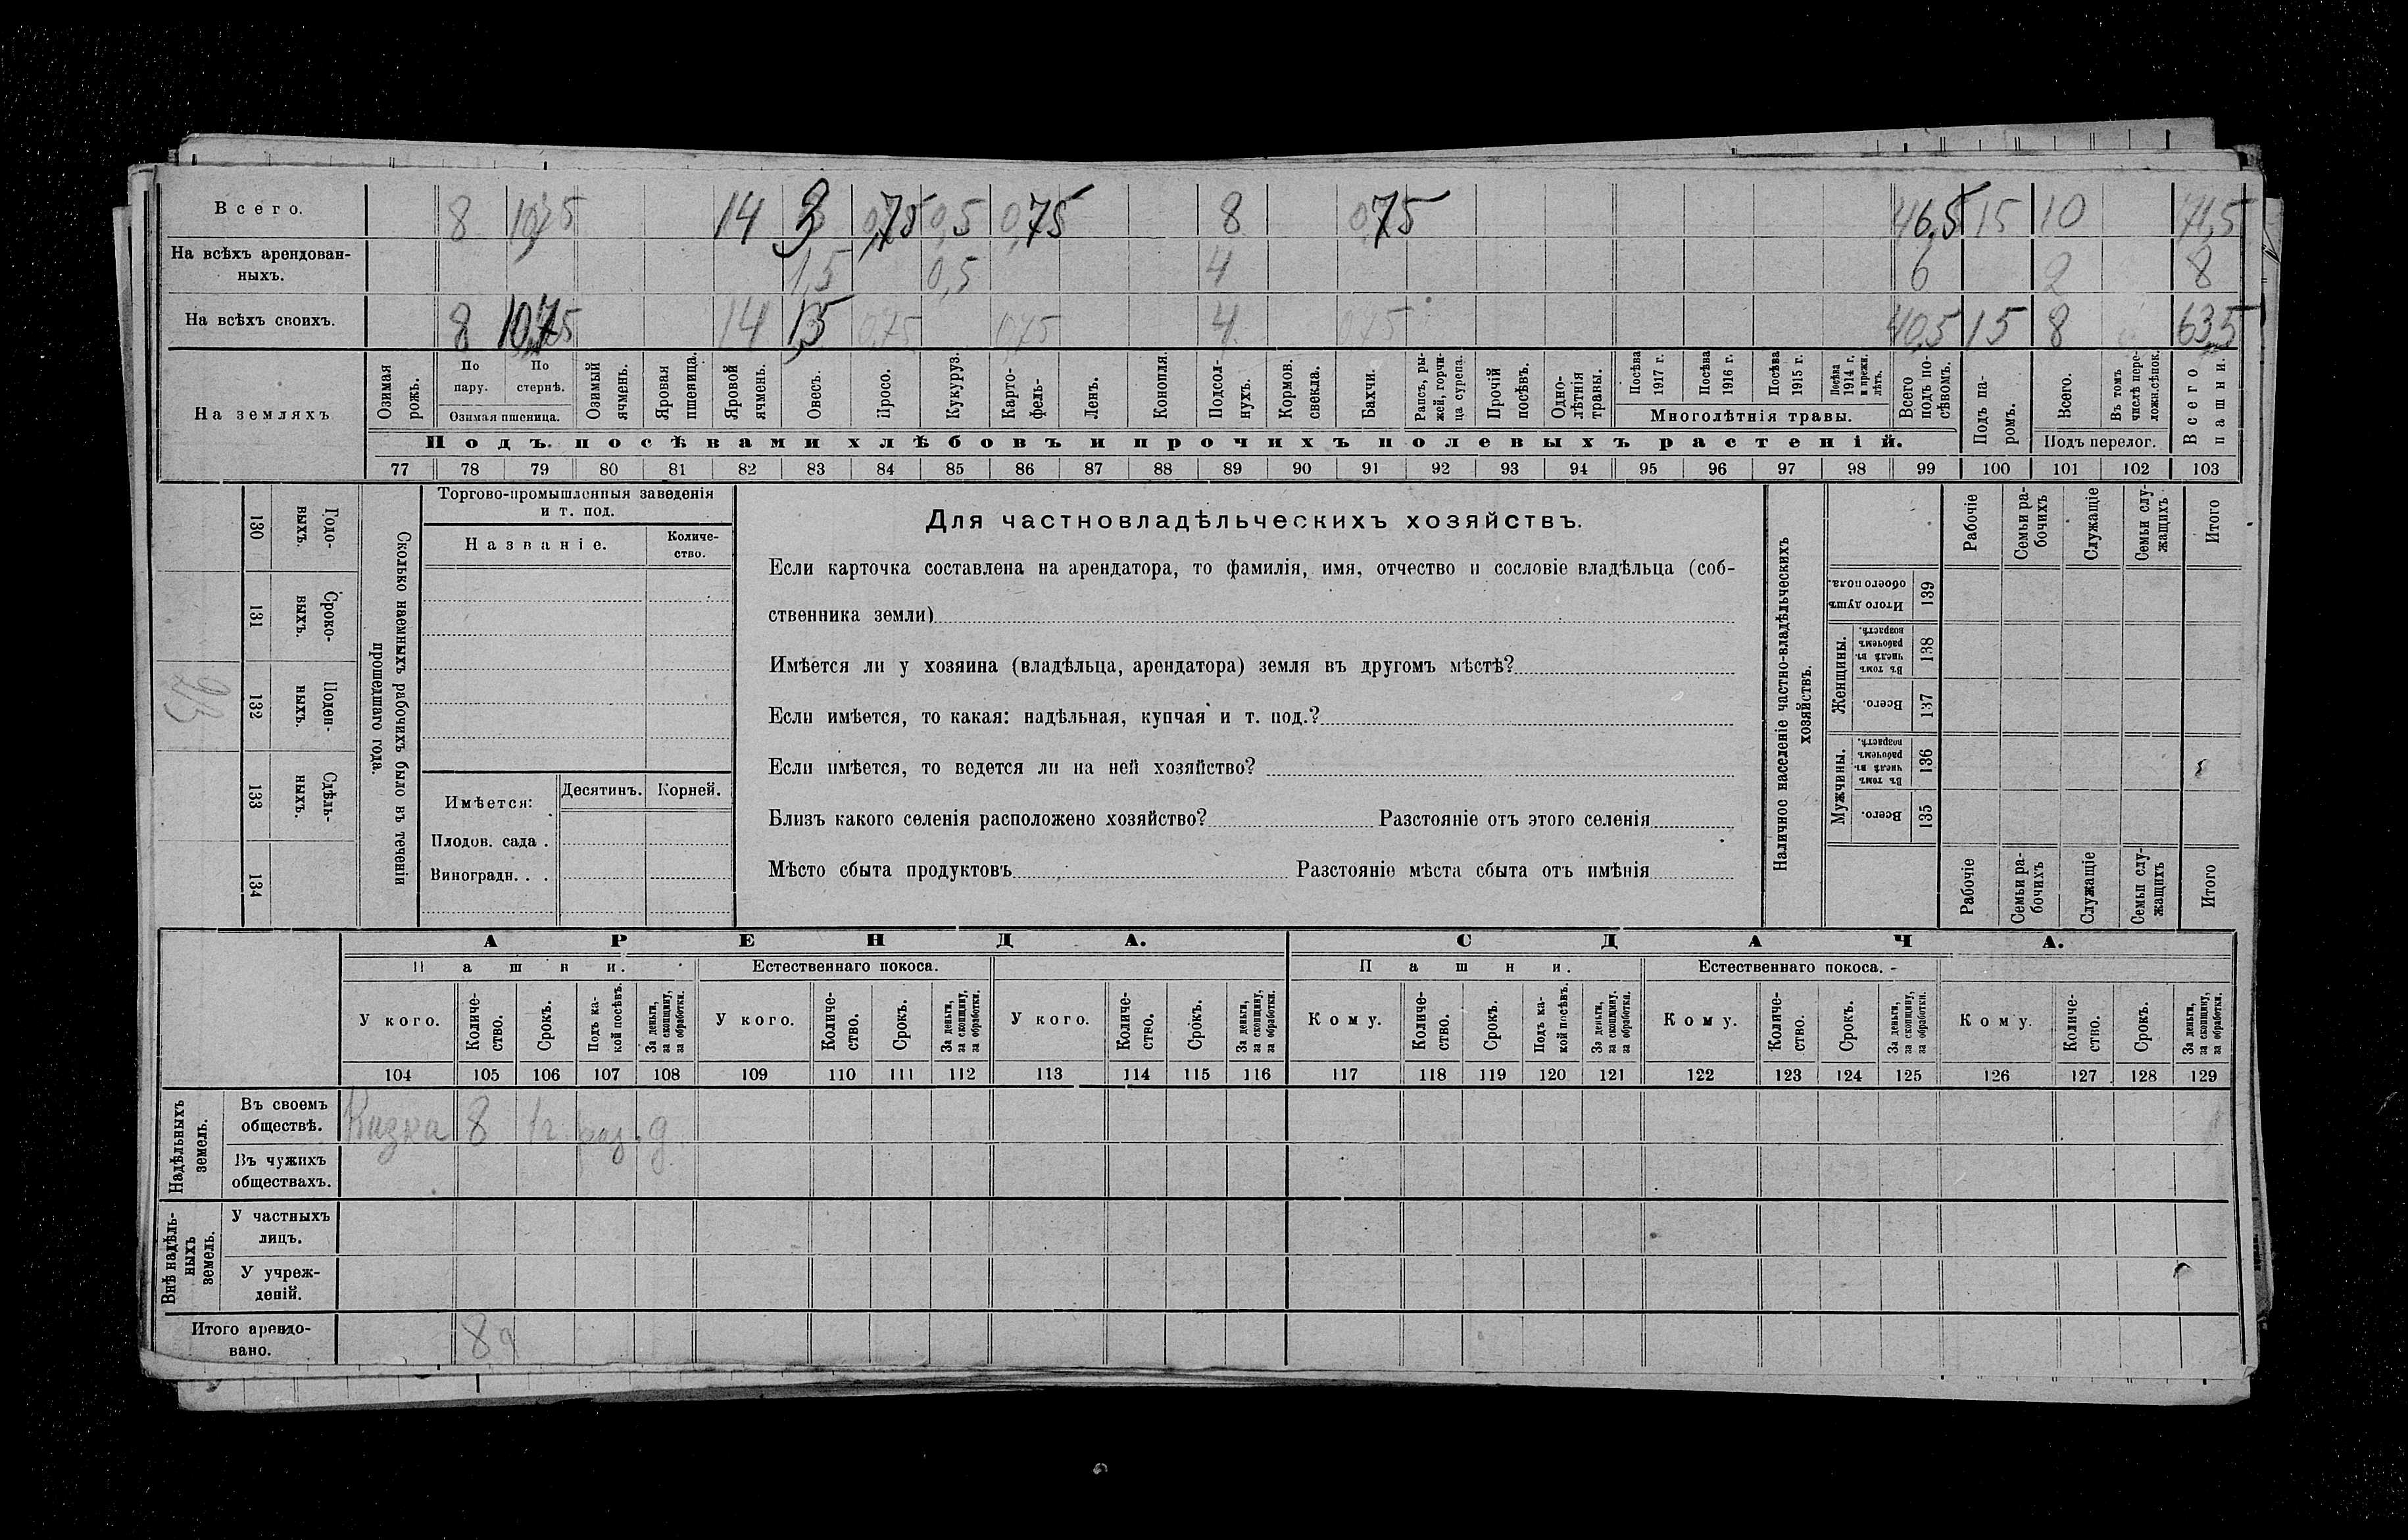 Всего. 8 10,75 14 3 0,75 0,5 0,75 8 0,75 46,5 15 10 71,5
На всѣхъ арендован-
ныхъ. 1,5 0,5 4 6 2 8
На всѣхъ своихъ. 8 10,75 14 1,5 0,75 0,75 4 0,75 40,5 15 8 63,5
На земляхъ
Озимая рожь.
По пару.
По стернѣ.
Озимая пшеница.
Озимый ячмень.
Яровая пшеница.
Яровой ячмень.
Овесъ.
Просо.
Кукуруз.
Карто-
фель-
Ленъ.
Конопля.
Подсол-
нухъ.
Кормов.
свекла.
Бахчи.
Рапсъ, ры-
жей, горчи-
ца сурепа.
Прочій
посѣвъ.
Одно-
лѣтнія
травы.
Посѣва
1917 г.
Посѣва
1916 г.
Посѣва
1915 г.
Посѣва
1914 г.
и прежн.
лѣтъ.
Многолѣтнія травы.
Всего
подъ по-
сѣвомъ.
Подъ па-
ромъ.
Всего.
Въ томъ
числѣ пере-
ложн.сѣнок.
Подъ перелог.
Всего
пашни.
Подъ посѣвами хлѣбовъ и прочихъ полевыхъ растеній.
77 78 79 80 81 82 83 84 85 86 87 88 89 90 91 92 93 94 95 96 97 98 99 100 101 102 103
130
Годо-
выхъ.
131
Сроко-
выхъ.
132
Поден-
ныхъ.
133
Сдѣль-
ныхъ.
134
Сколько наемныхъ рабочихъ было въ теченіи
прошедшаго года.
Торгово-промышленныя заведенія
и т. под.
Названіе.
Количе-
ство.
Имѣется:
Десятинъ. Корней.
Плодов. сада .
Виноградн. . .
Для частновладѣльческихъ хозяйствъ.
Если карточка составлена на арендатора, то фамилія, имя, отчество и сословіе владѣльца (соб-
ственника земли)
Имѣется ли у хозяина (владѣльца, арендатора) земля въ другомъ мѣстѣ?
Если имѣется, то какая: надѣльная, купчая и т. под.?
Если имѣется, то ведется ли на ней хозяйство?
Близъ какого селенія расположено хозяйство? Разстояніе отъ этого селенія
Мѣсто сбыта продуктовъ Разстояніе мѣста сбыта отъ имѣнія
Наличное населеніе частно-владѣльческихъ
хозяйствъ.
Рабочіе
Семьи ра-
бочихъ
Служащіе
Семьи слу-
жащихъ
Итого
Итого душъ
обоего пола.
139
Женщины.
Въ томъ
числѣ въ
рабочемъ
возрастѣ.
138
Всего.
137
Мужчины.
Въ томъ
числѣ въ
рабочемъ
возрастѣ.
136
Всего.
135
Рабочіе
Семьи ра-
бочихъ
Служащіе
Семьи слу-
жащихъ
Итого
АРЕНДА. СДАЧА.
Пашни. Естественнаго покоса. Пашни. Естественнаго покоса.
У кого.
Количе-
ство.
Срокъ.
Подъ ка-
кой посѣвъ.
За деньги,
за скопщину,
за обработки.
У кого.
Количе-
ство.
Срокъ.
За деньги,
за скопщину,
за обработки.
У кого.
Количе-
ство.
Срокъ.
За деньги,
за скопщину,
за обработки.
Кому.
Количе-
ство.
Срокъ.
Подъ ка-
кой посѣвъ.
За деньги,
за скопщину.
за обработки.
Кому.
Количе-
ство.
Срокъ.
За деньги,
за скопщину,
за обработки.
Кому.
Количе-
ство.
Срокъ.
За деньги,
за скопщину,
за обработки.
104 105 106 107 108 109 110 111 112 113 114 115 116 117 118 119 120 121 122 123 124 125 126 127 128 129
Надѣльныхъ
земель.
Въ своемъ
обществѣ. 8 1 г. раз. д.
Въ чужихъ
обществахъ.
Внѣ надѣль-
ныхъ
земель.
У частныхъ
лицъ.
У учреж-
деній.
Итого арендо-
вано. 8